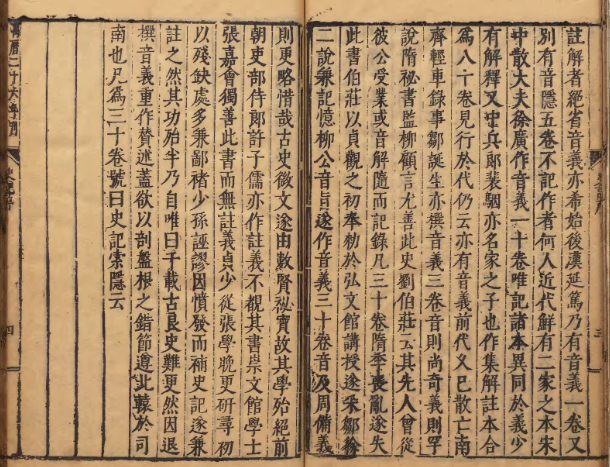 註解者絕省音義亦希始後漢延篤乃有音義一卷又
別有音隱五卷不記作者何人近代鮮有二家之本宋
中散大夫徐廣作音義一十卷唯記諸本異同於義少
有解釋又中兵郎裴駰亦名家之子也作集解註本合
為八十卷見行於代仍云亦有音義前代久已散亡南
齊輕車錄事鄒誕生亦撰音義三卷音則尚奇義則罕
說隋秘書監柳顧言尤善此史劉伯莊云其先人曾從
彼公受業或音解隨而記錄凡三十卷隋季喪亂遂失
此書伯莊以貞觀之初奉勑於弘文館講授遂采鄒徐
二說兼記憶柳公音旨遂作音義三十卷音及周備義
則更略惜哉古史微文遂由數賢秘寶故其學殆絕前
朝吏部侍郎許子儒亦作註義不覩其書崇文館學士
張嘉會獨善此書而無註義貞少從張學晚更研尋初
以殘缺處多兼鄙褚少孫誣謬因憤發而補史記遂兼
註之然其功殆半乃自唯曰千載古良史難更然因退
撰音義重作贊述蓋欲以剖盤根之錯節遵北轅於司
南也凡為三十卷號曰史記索隱云
四